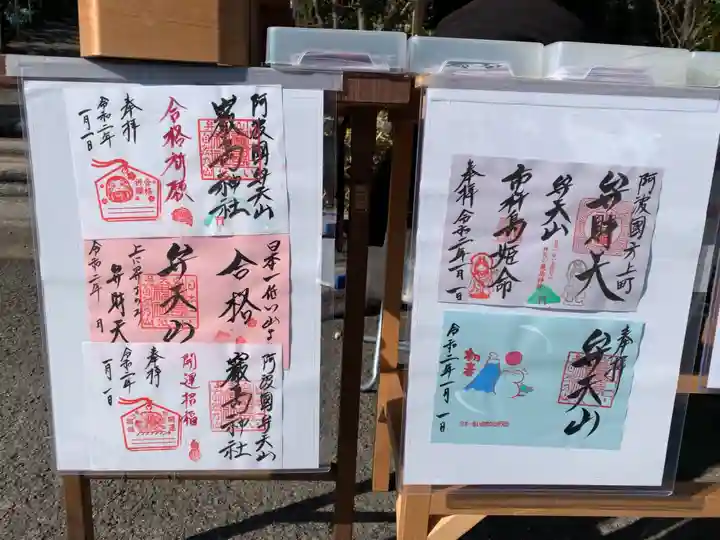 阿波國弁天山
嚴島神社
合格祈願
奉拝
令和二年
一月一日
日本一低い山よ
合格
弁天山
弁財天
令和二年 月
阿波國弁天山
嚴島神社
開運招福
奉拝
令和二年
一月一日
阿波國方上町
弁財天
弁天山
市杵島姫命
奉拝 令和二年一月一日
奉拝
弁天山
初夢
令和二年一月一日